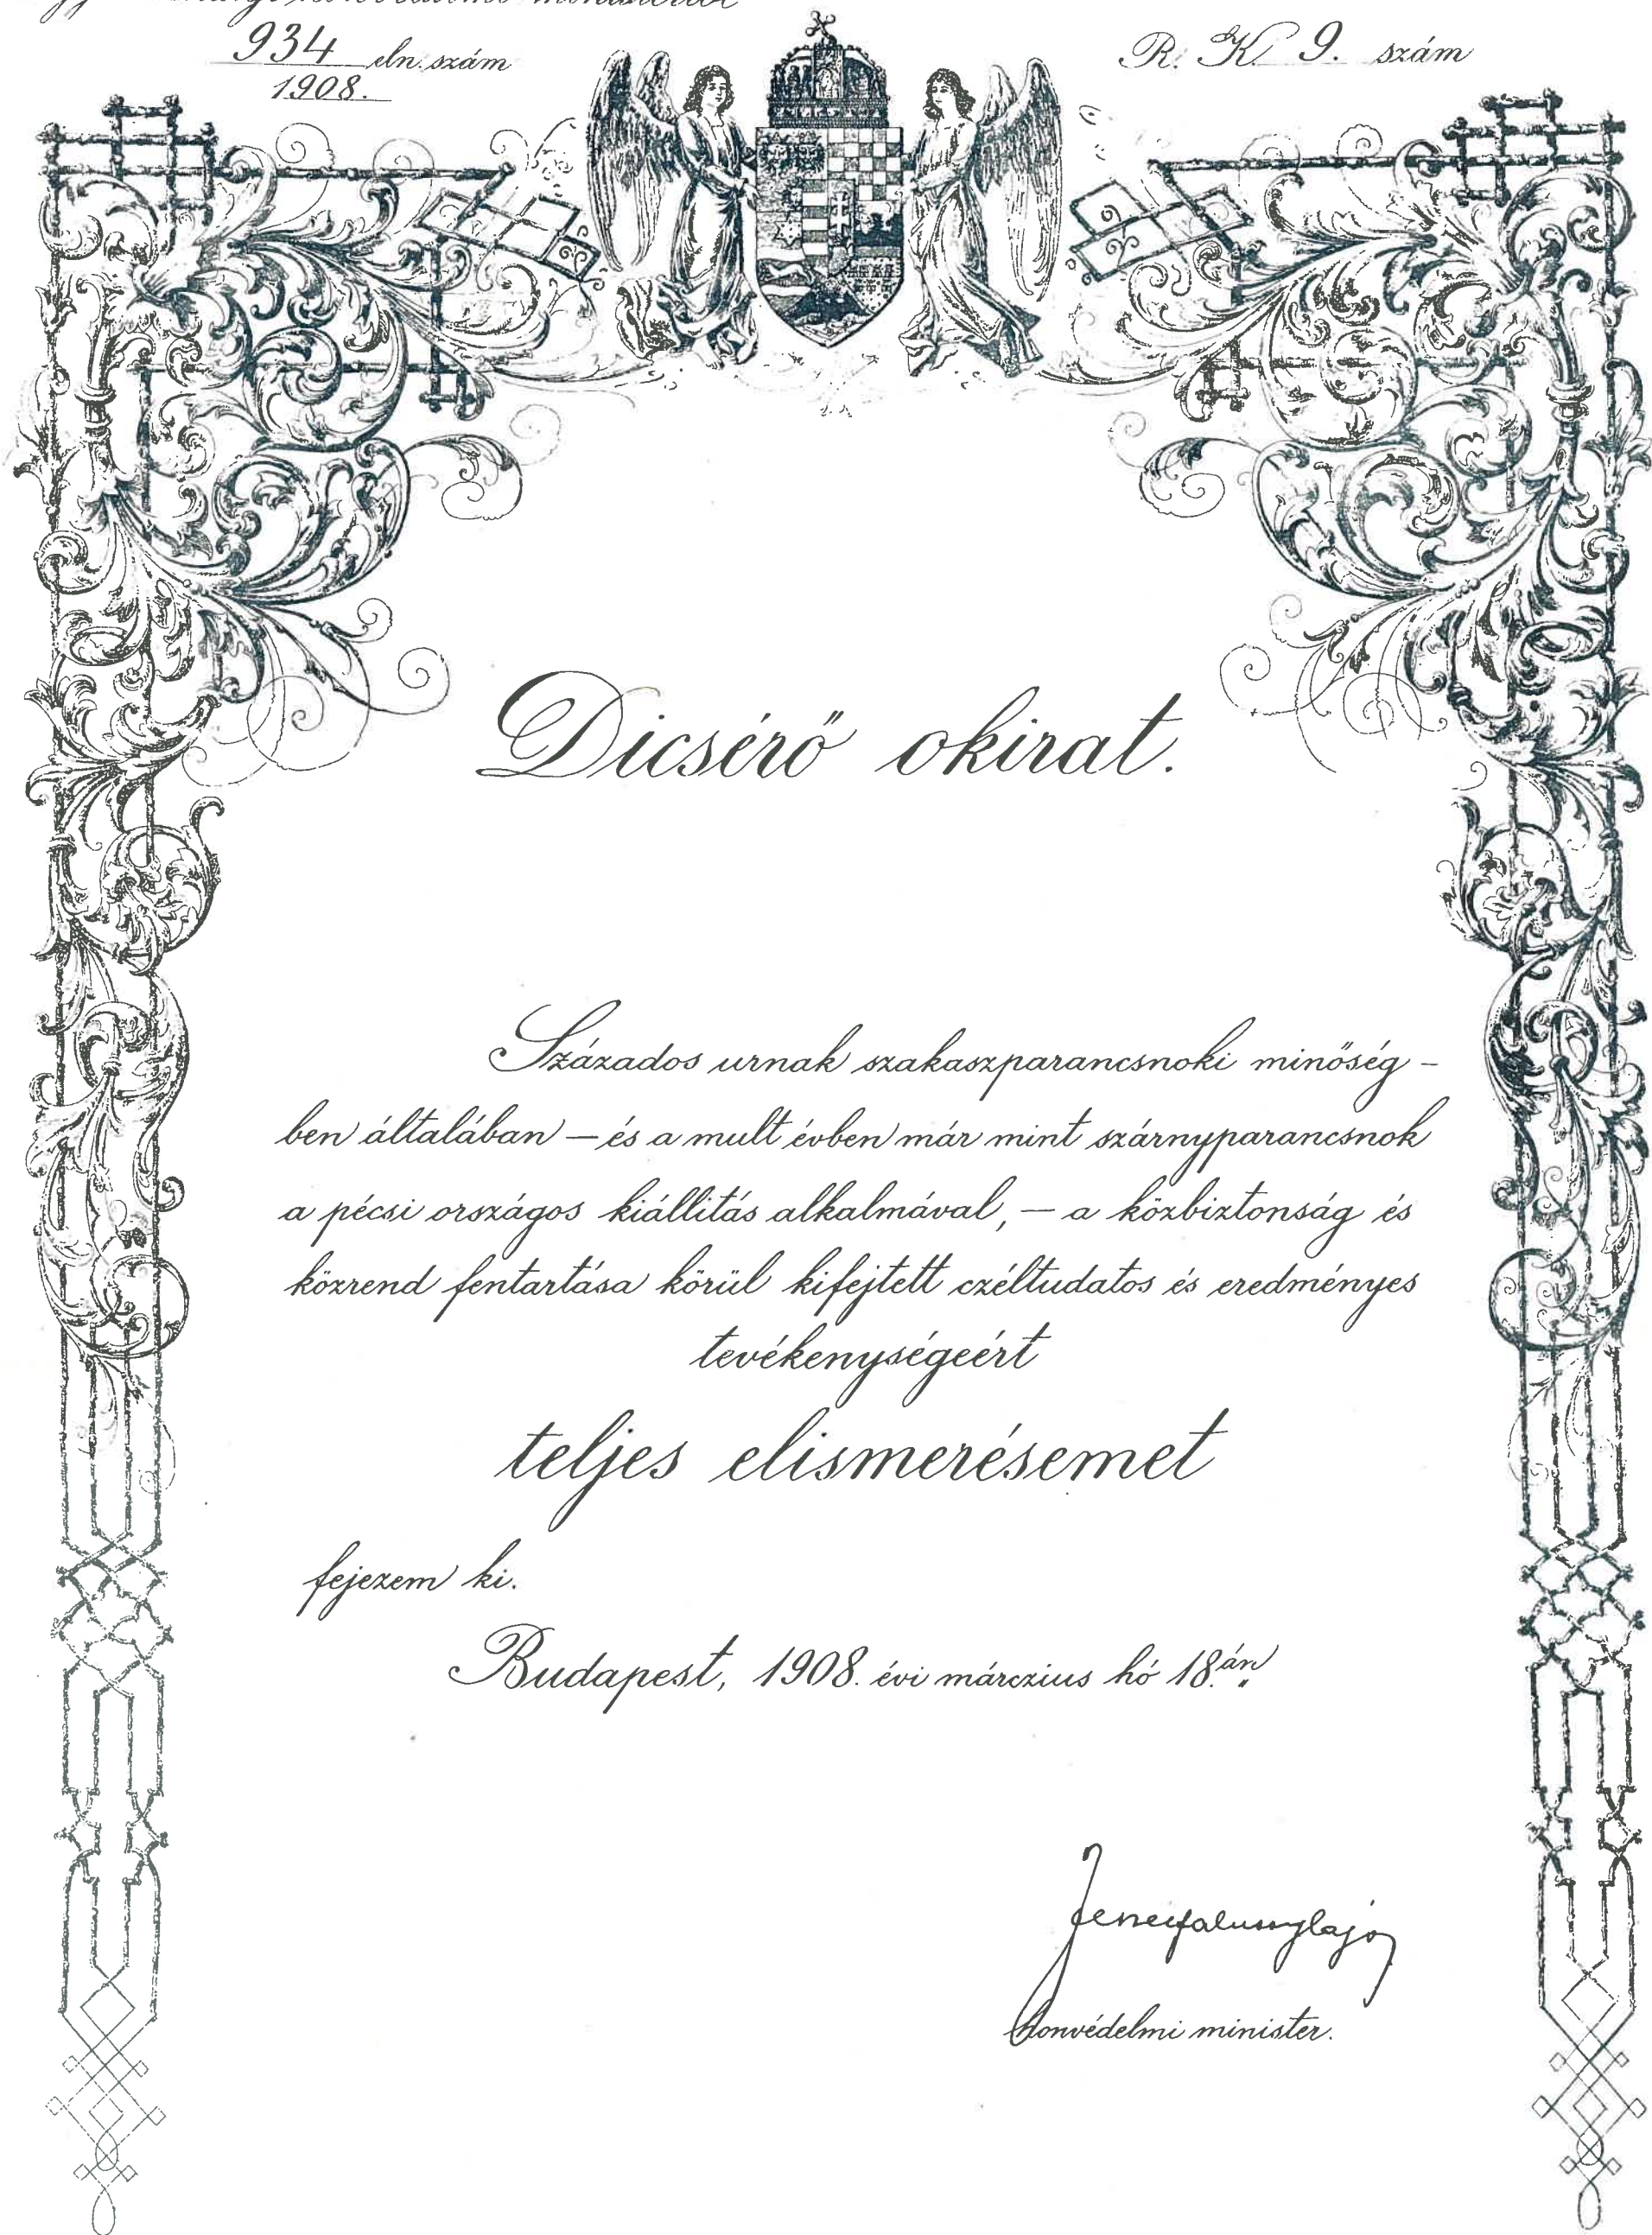 934 eln. szám
1908.
R. K. 9. szám
Dicsérő okirat.
Százados urnak szakaszparancsnoki minőség-
ben általában – és a mult évben már mint szárnyparancsnok
a pécsi országos kiállitás alkalmával, – a közbiztonság és
közrend fentartása körül kifejtett czéltudatos és eredményes
tevékenységeért
teljes elismerésemet
fejezem ki.
Budapest, 1908. évi márczius hó 18.án
honvédelmi minister.